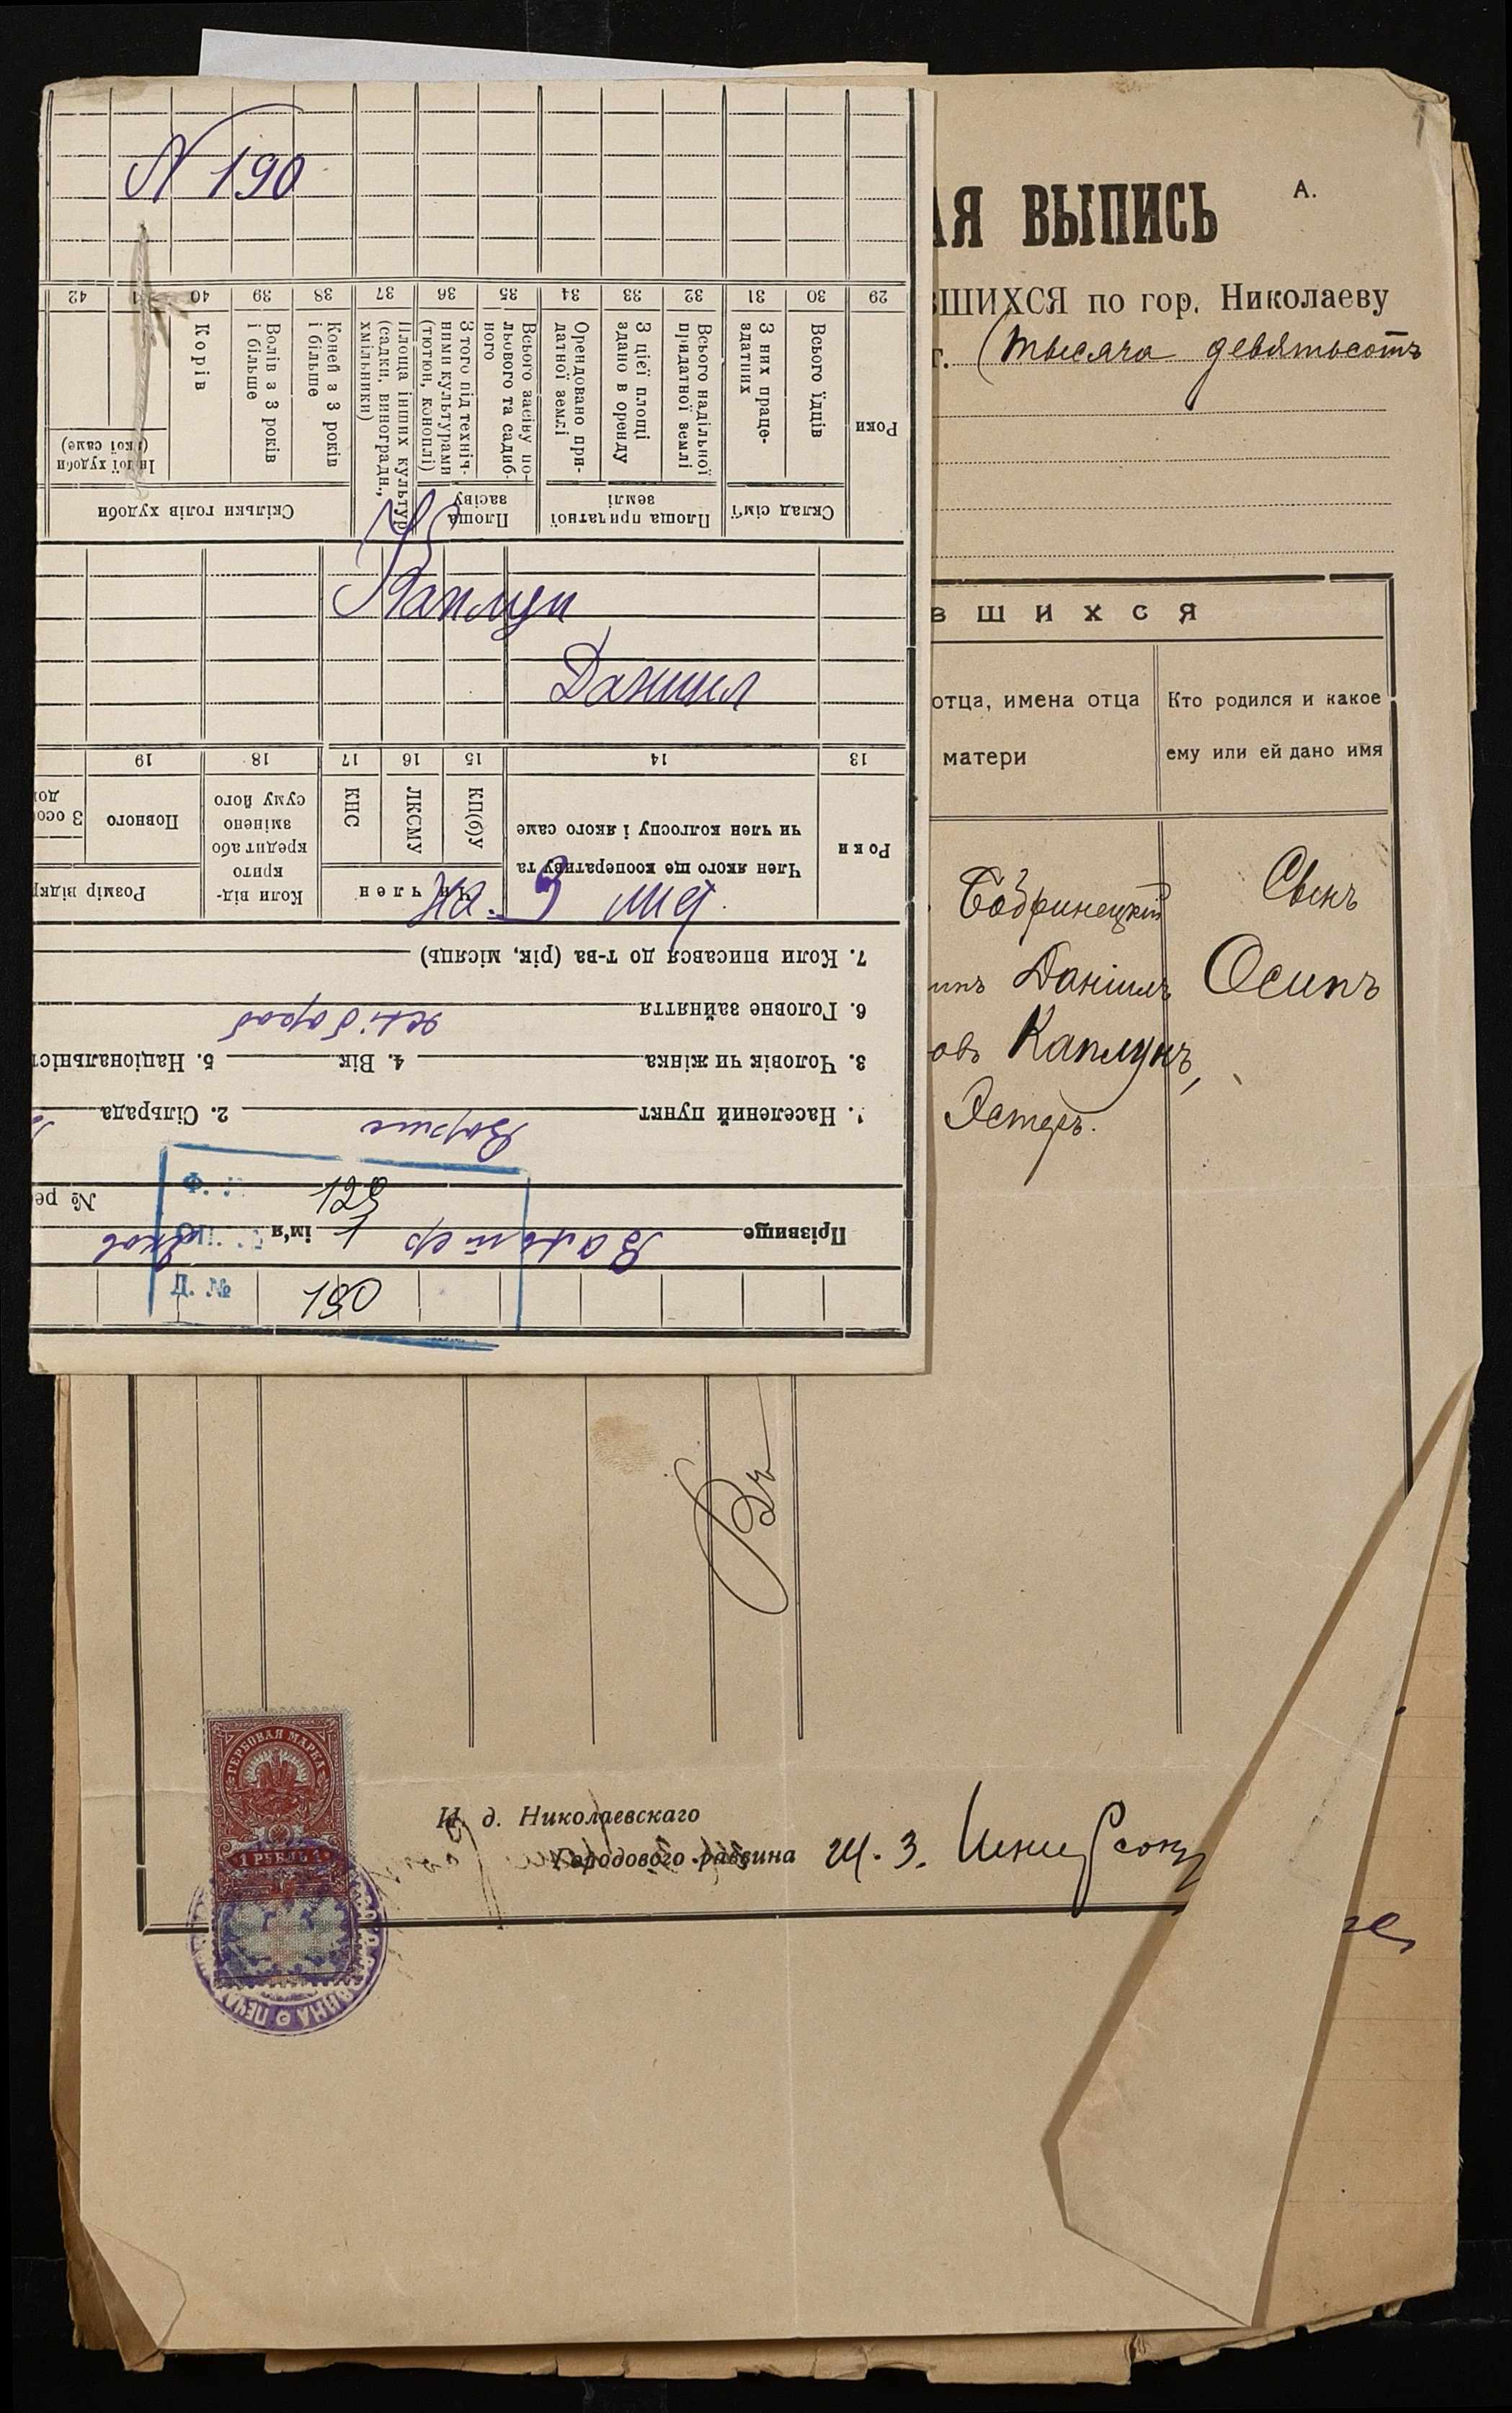 N 190
42
40
39
38
37
36
35
34
33
32
31
30
29
Корів
Волів з 3 років
і більше
Коней з 3 років
і більше
Площа інших культур
(садки, виноградн.,
хмільники)
З того під техніч-
ними культурами
(тютюн, коноплі)
Всього засіву по-
льового та садиб-
ного
Орендовано при-
датної землі
З цієї площі
здано в оренду
Всього надільної
придатної землі
З них праце-
здатних
Всього їдців
Роки
Іншої худоби
(якої саме)
Скільки голів худоби
Площа
засіву
Площа придатної
землі
Склад сім'ї
Каплун
Даниил
19
18
17
16
15
14
13
Повного
Коли від-
крито
кредит або
змінено
суму його
КНС
ЛКСМУ
КП(б)У
Член якого ще кооперативу та
чи член колгоспу і якого саме
Роки
Розмір відкр
Чи член
7. Коли вписався до т-ва (рік, місяць)
6. Головне зайняття
3. Чоловік чи жінка 4. Вік 5. Національніст
1. Населений пункт 2. Сільрада
№ ре
Прізвище Вальтер ім'я Яков
190
АЯ ВЫПИСЬ
А.
ВШИХСЯ по гор. Николаеву
г. (тысяча девятьсотъ
вшихся
отца, имена отца
матери
Кто родился и какое
ему или ей дано имя
Бобринецкій
Сынъ
инъ Даніилъ
Осипъ
овъ Каплунъ,
Эстеръ.
ГЕРБОВАЯ МАРКА
1 РУБЛЬ 1
И. д. Николаевскаго
Городового раввина